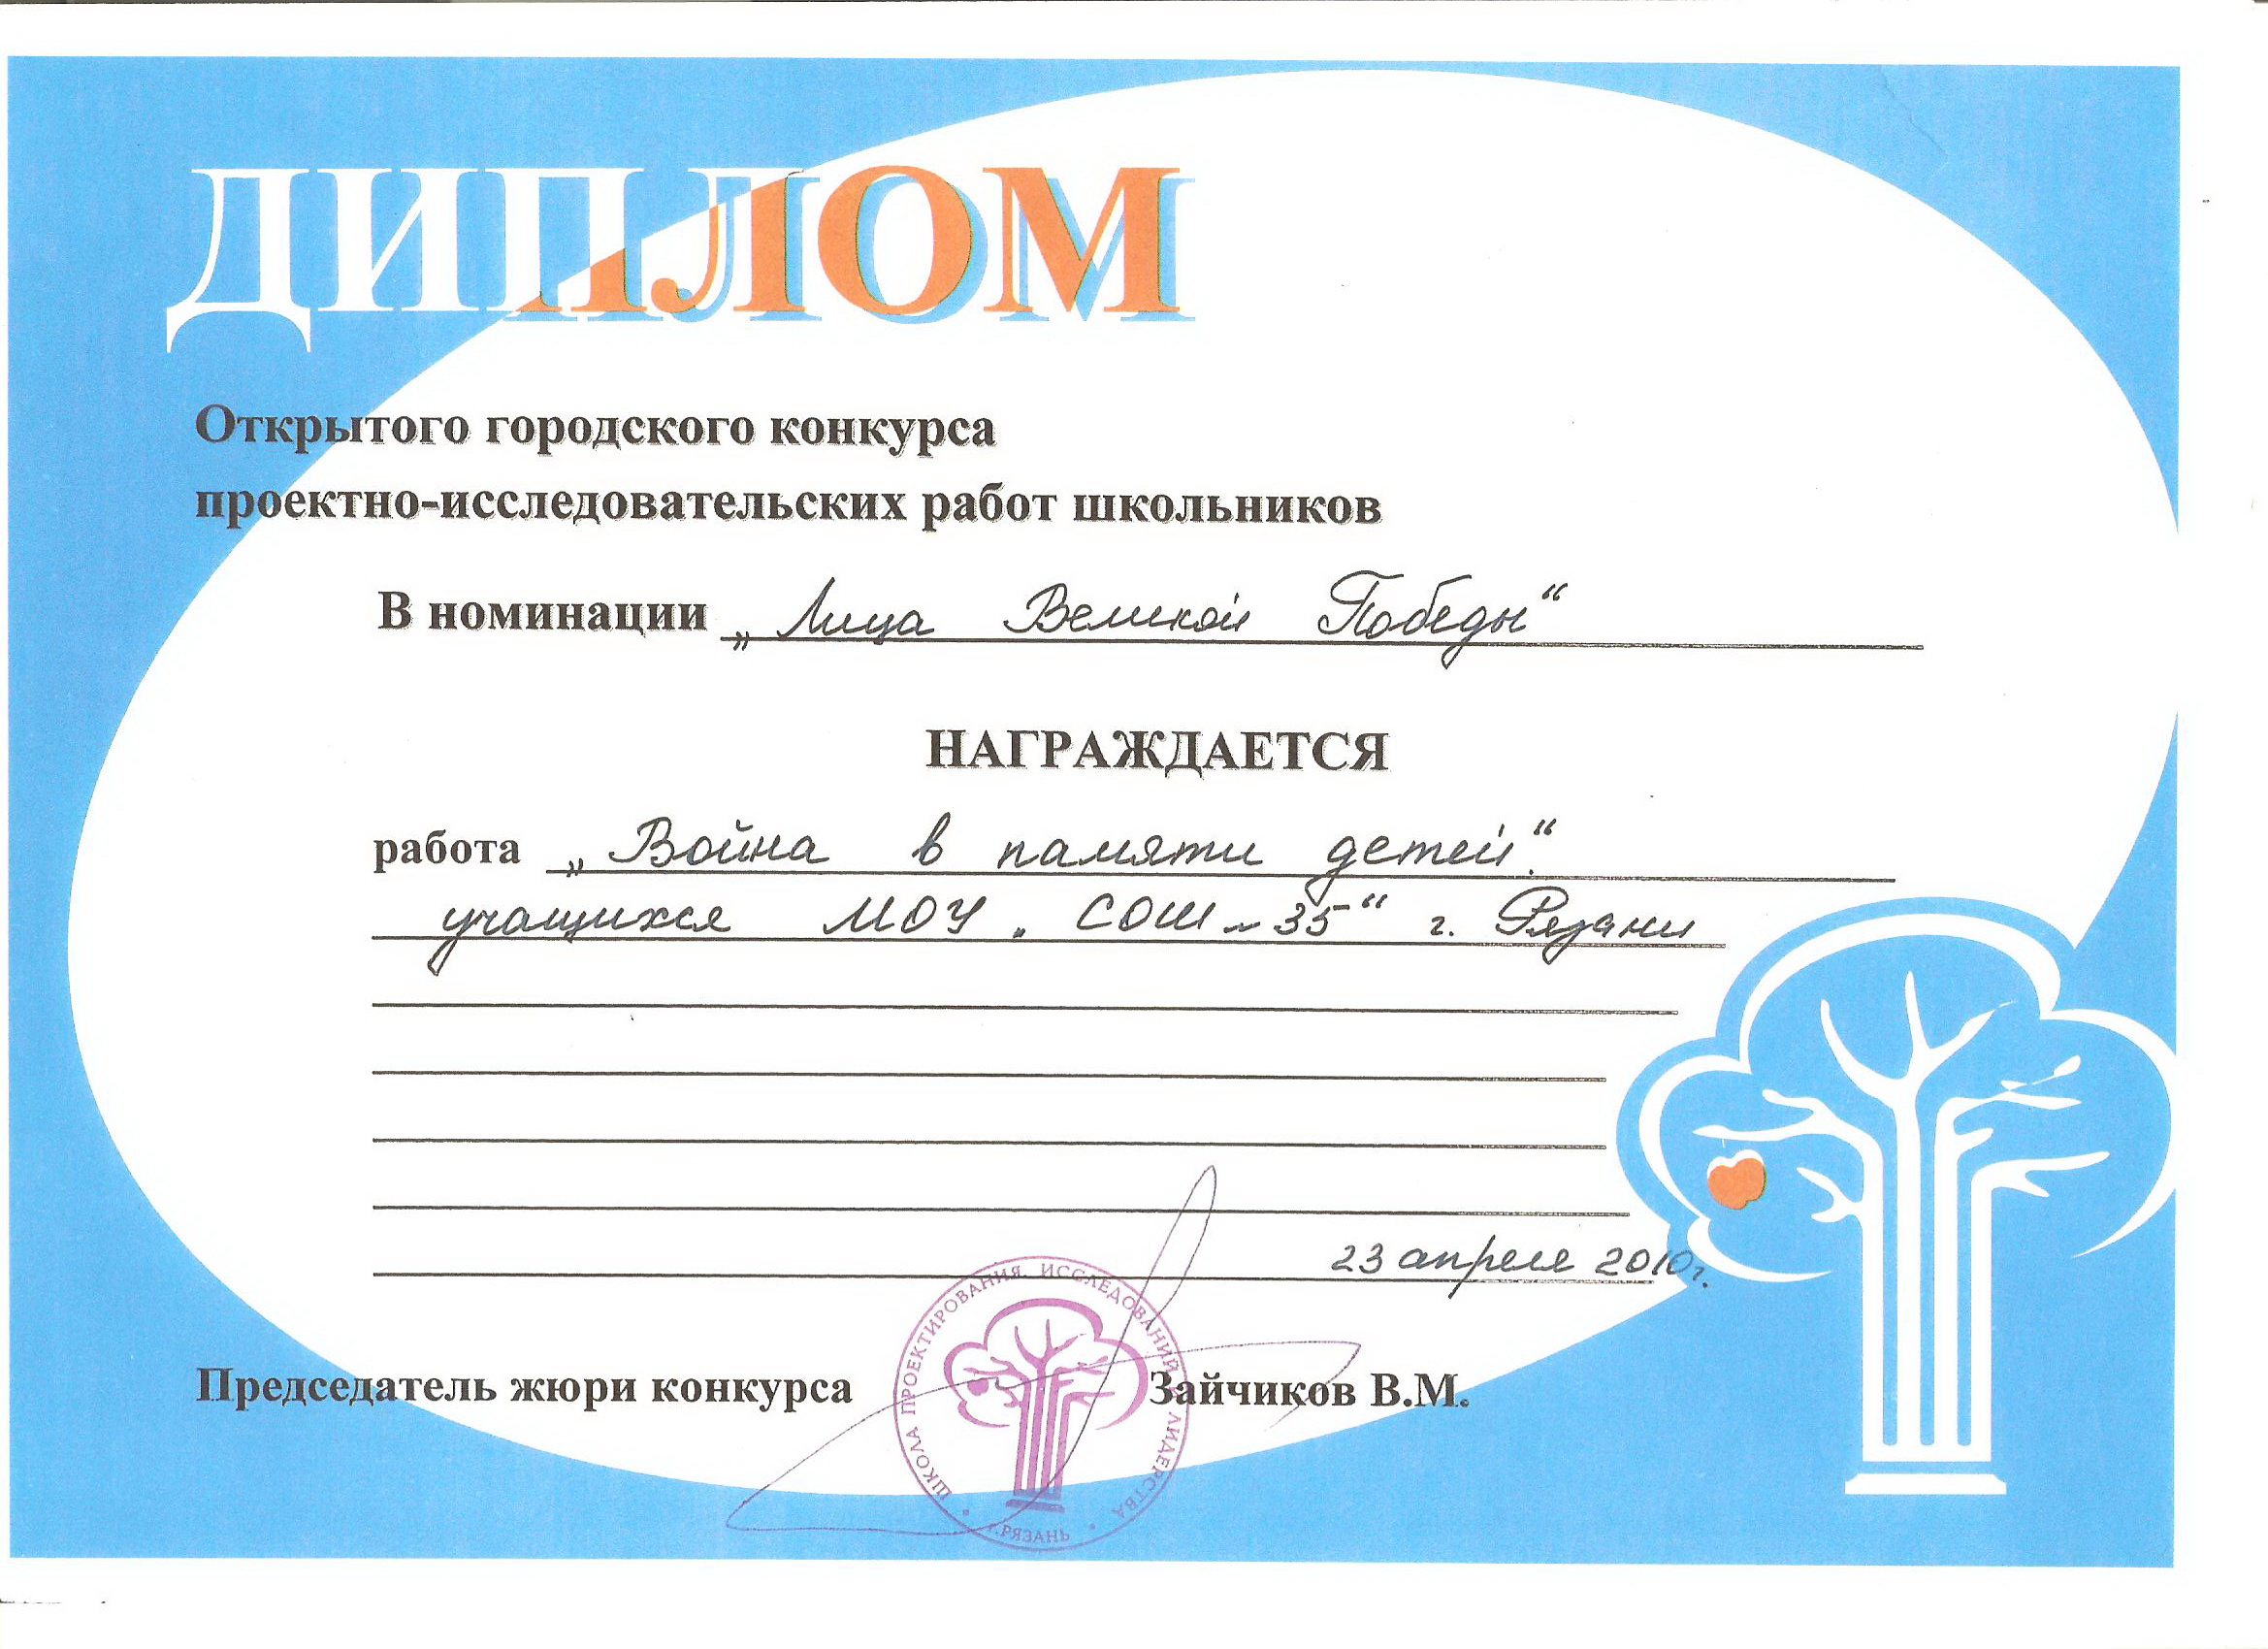 ДИПЛОМ
Открытого городского конкурса
проектно-исследовательских работ школьников
В номинации „Лица Великой Победы“
НАГРАЖДАЕТСЯ
работа „Война в памяти детей“.
учащихся МОУ „СОШ ~ 35“ г. Рязани
23 апреля 2010г.
Председатель жюри конкурса Зайчиков В.М.
ШКОЛА ПРОЕКТИРОВАНИЯ, ИССЛЕДОВАНИЙ ЛИДЕРСТВА
Г.РЯЗАНЬ